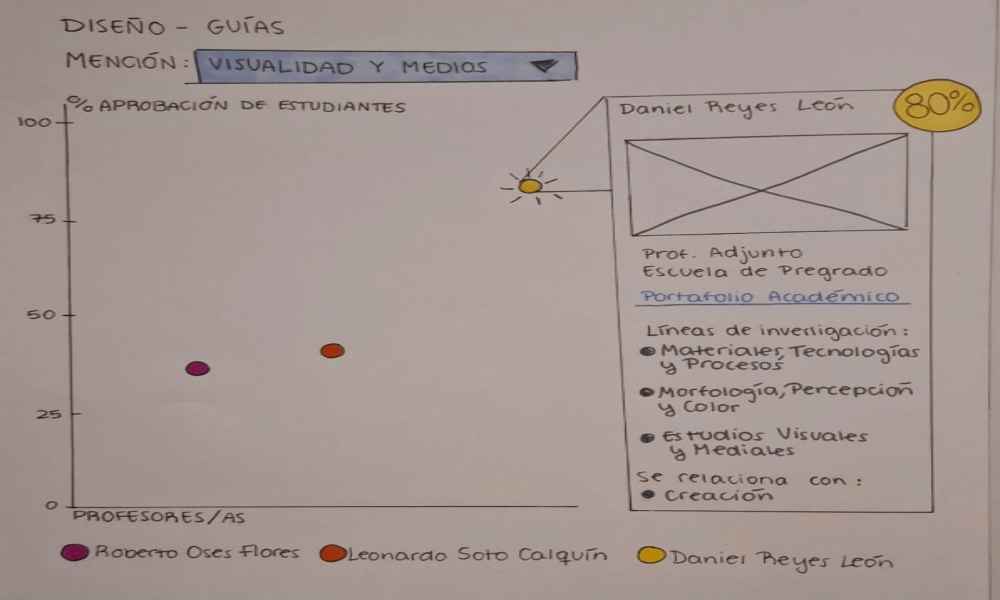 DISEÑO - GUÍAS
MENCIÓN: VISUALIDAD Y MEDIOS
% APROBACIÓN DE ESTUDIANTES
100
75
50
25
0
PROFESORES/AS
Daniel Reyes León
80%
Prof. Adjunto
Escuela de Pregrado
Portafolio Académico
Líneas de investigación:
Materiales, Tecnologías
y Procesos
Morfología, Percepción
y Color
Estudios Visuales
y Mediales
Se relaciona con:
Creación
Roberto Oses Flores
Leonardo Soto Calquín
Daniel Reyes León